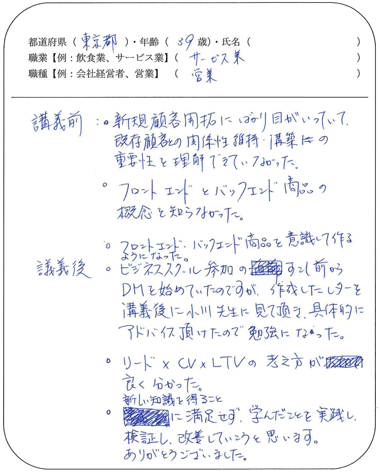 都道府県(東京都)・年齢(39歳)・氏名( )
職業【例:飲食業、サービス業】(サービス業)
職種【例:会社経営者、営業】(営業)
講義前:・新規顧客開拓にばかり目がいっていて、
既存顧客との関係性維持・構築の
重要性を理解できていなかった。
・フロントエンドとバックエンド商品の
概念を知らなかった。
・フロントエンド・バックエンド商品を意識して作る
ようになった。
講義後・ビジネススクール参加のすこし前から
DMを始めていたのですが、作成したレターを
講義後に小川先生に見て頂き、具体的に
アドバイス頂けたので勉強になった。
・リード×CV×LTVの考え方が
良く分かった。
新しい知識を得ること
・に満足せず、学んだことを実践し、
検証し、改善していこうと思います。
ありがとうございました。